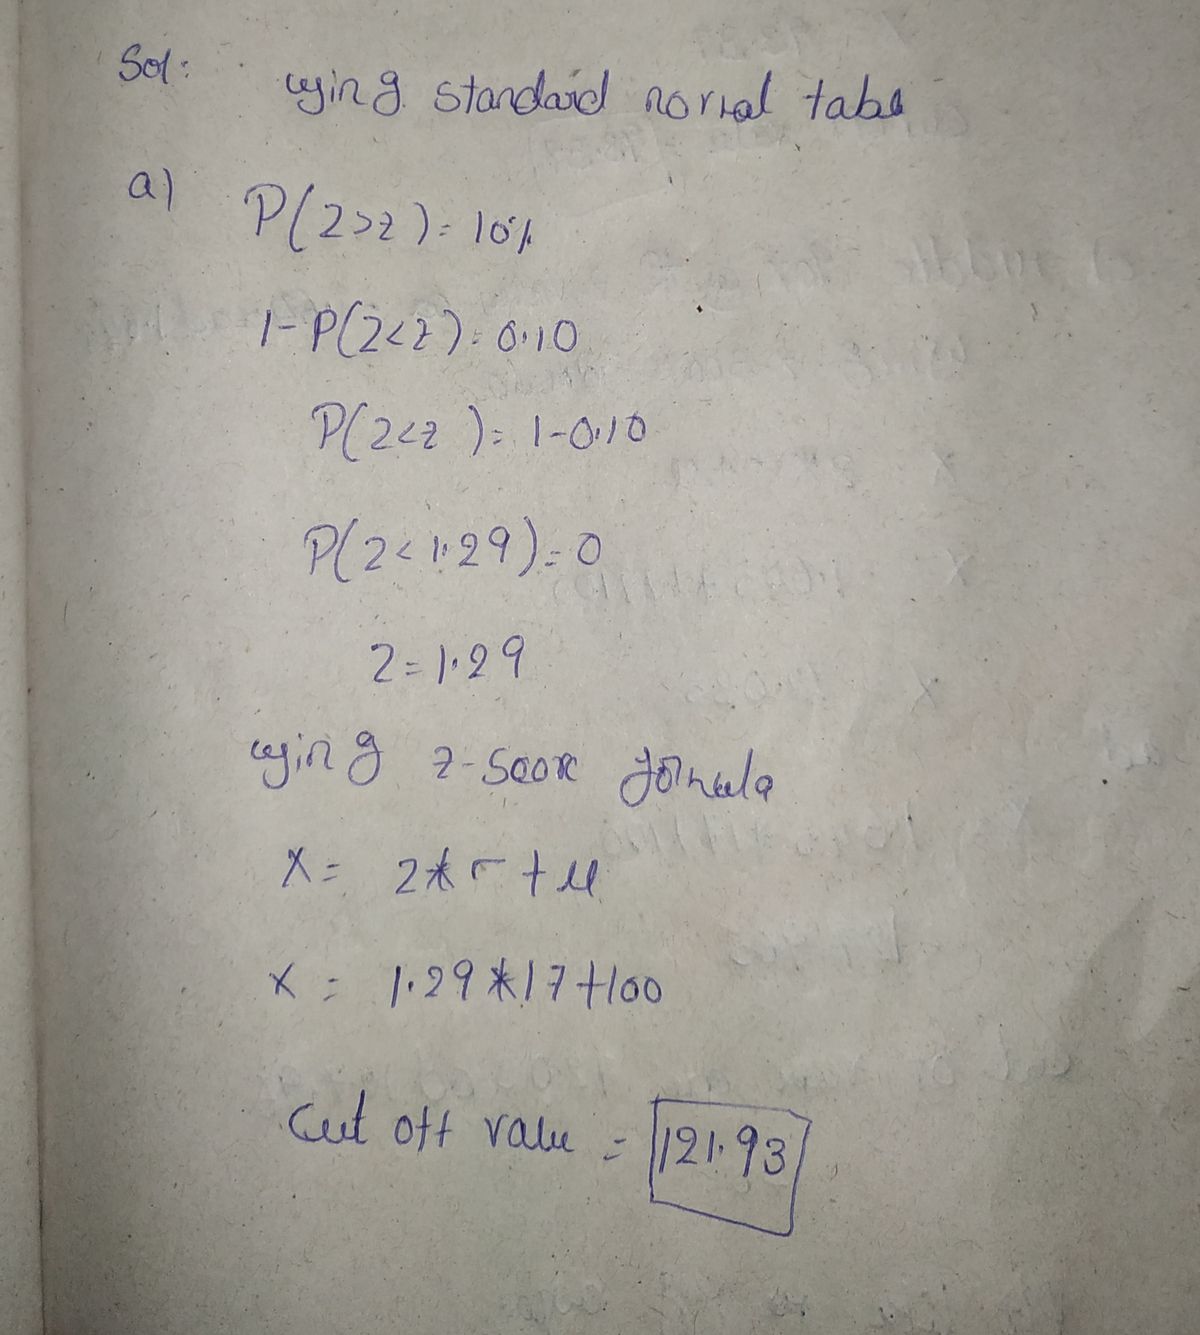 Sol:
using standard normal table
a) P(Z>z) = 10%
1-P(Z<z) = 0.10
P(Z<z) = 1-0.10
P(Z<1.29) = 0
Z = 1.29
using z-score formula
X = Z*σ+μ
X = 1.29*17+100
Cut off value = 121.93